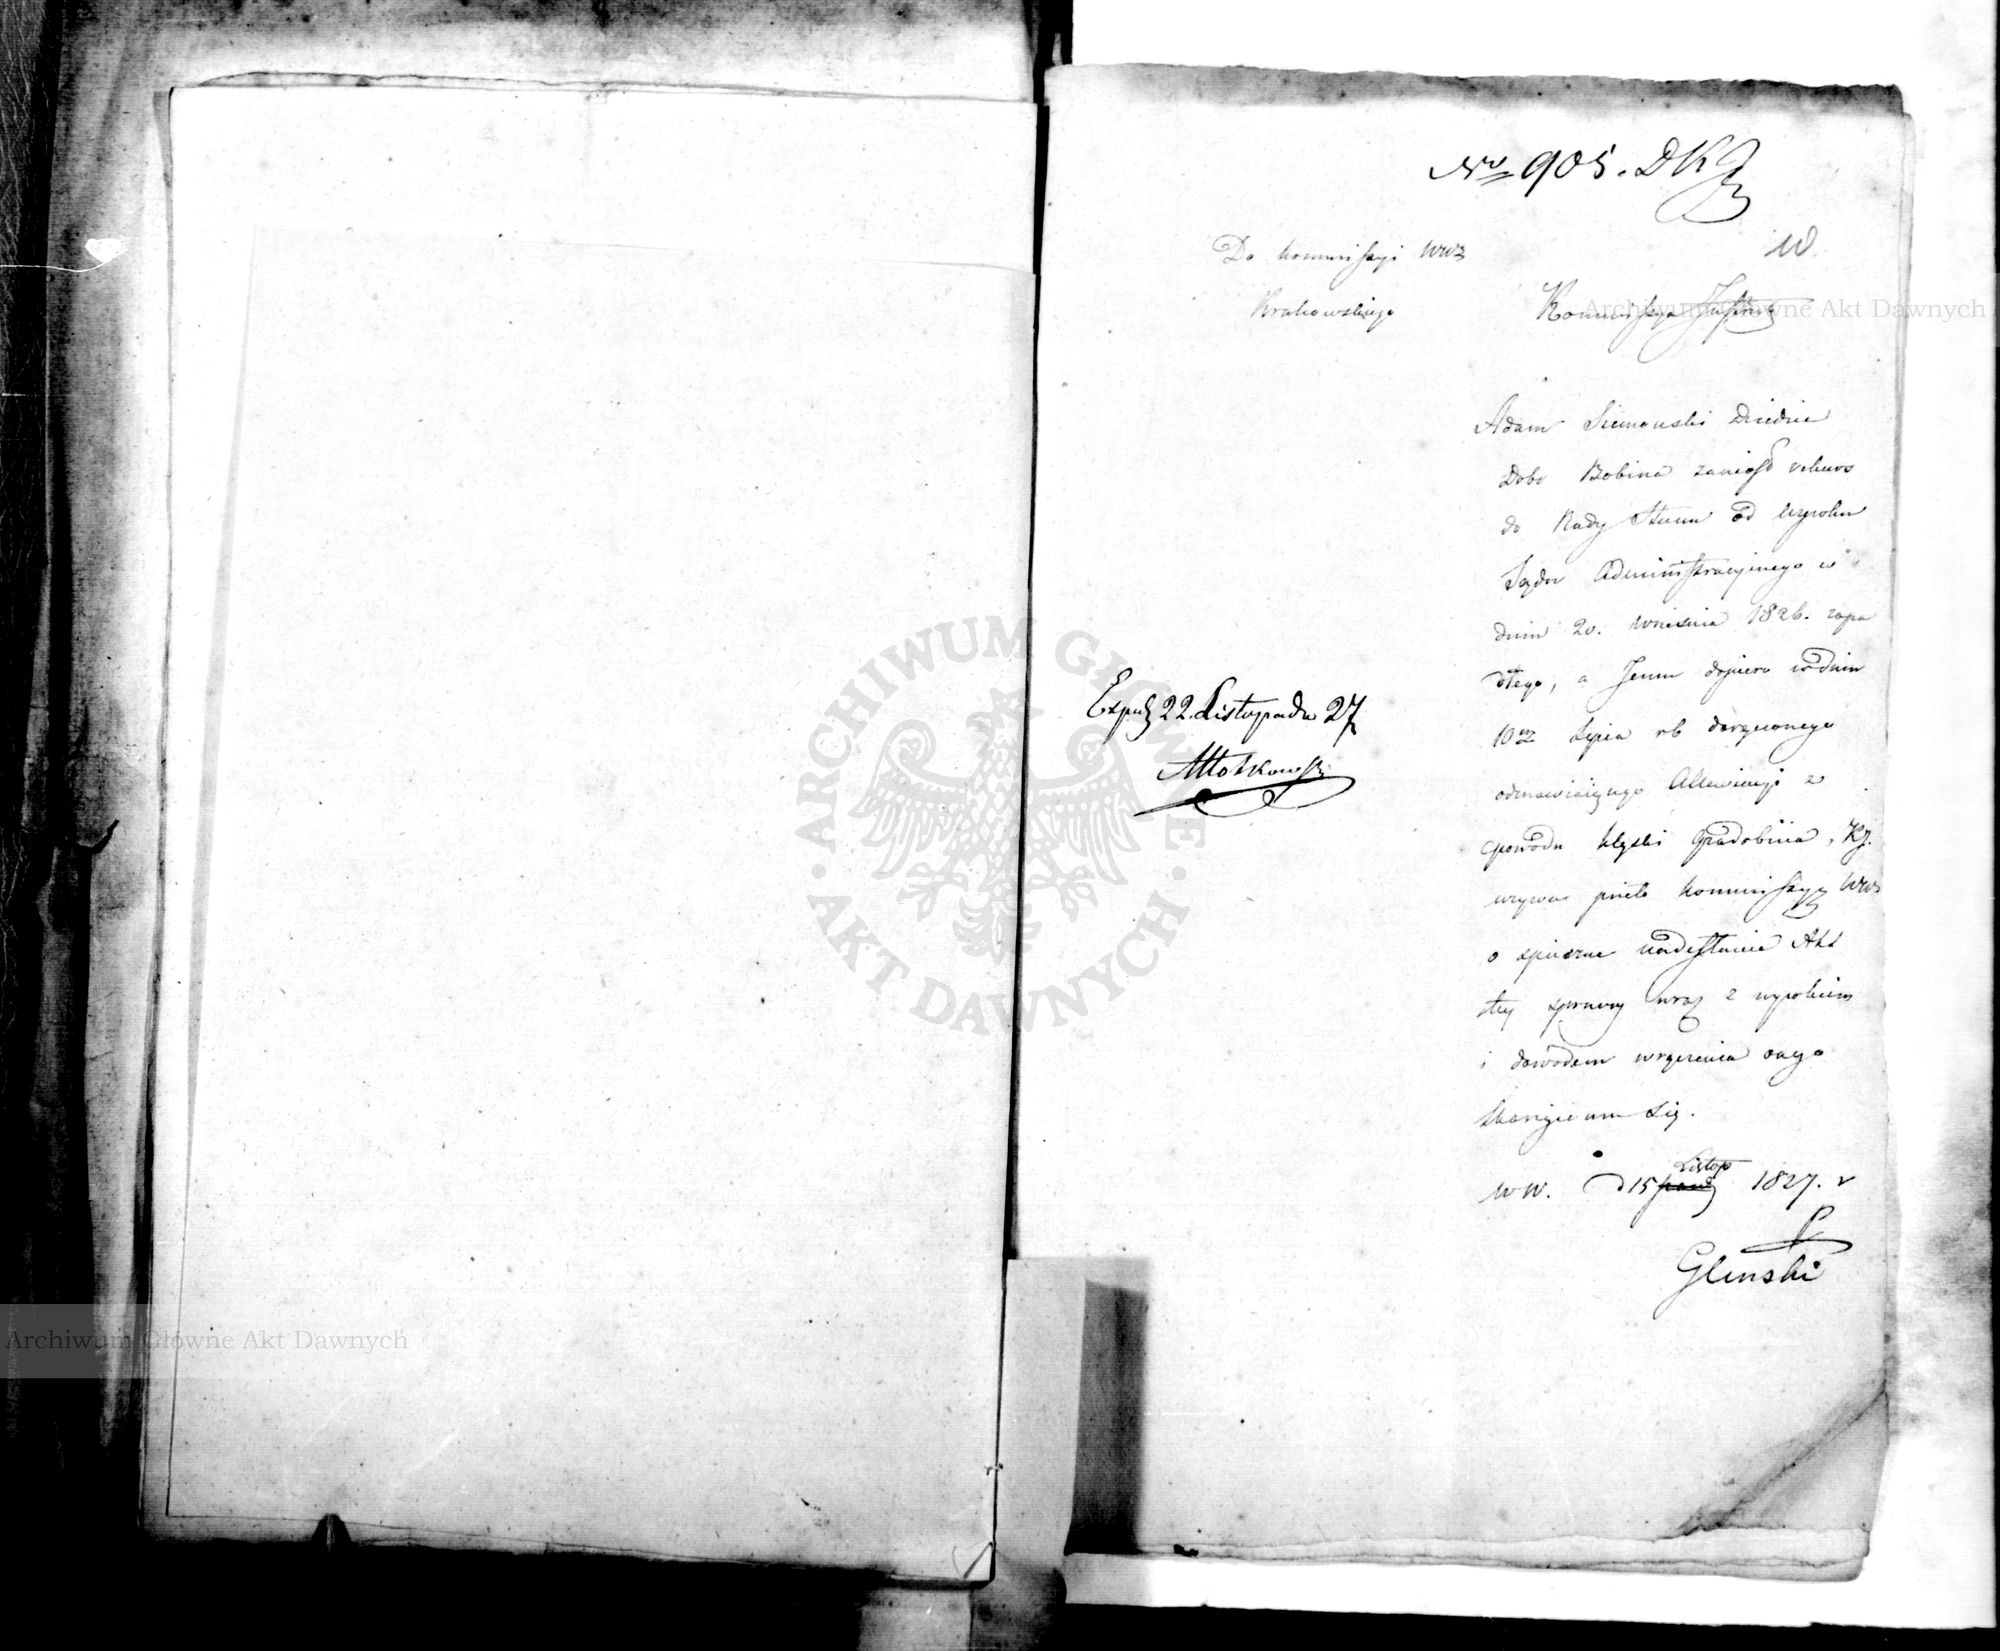 No 905. DKJ
Do Kommissyi Wwz
Krakowskiego
W
Kommissya
Adam Siemoński Dziedzic
Dóbr Bobina zaniosł rekurs
do Rady Stanu od wyroku
Sądu Administracyinego w
dniu 20. Września 1826. zapa
dłego, a Jemu dopiero w dniu
10 Lipca rb doręczonego
odmawiaiącego Allewiacyi z
powodu klęski Gradobicia, KJ.
wzywa przeto Kommissyą Wwz
o spieszne nadesłanie Akt
tey sprawy wraz z wyrokiem
i dowodem wręczenia onego
skarżącemu się.
w W. d 15 Listop 1827. r
Glinski
Exped 22. Listopada 27
Młotkowski
ARCHIWUM GŁÓWNE AKT DAWNYCH
Archiwum Główne Akt Dawnych
Archiwum Główne Akt Dawnych